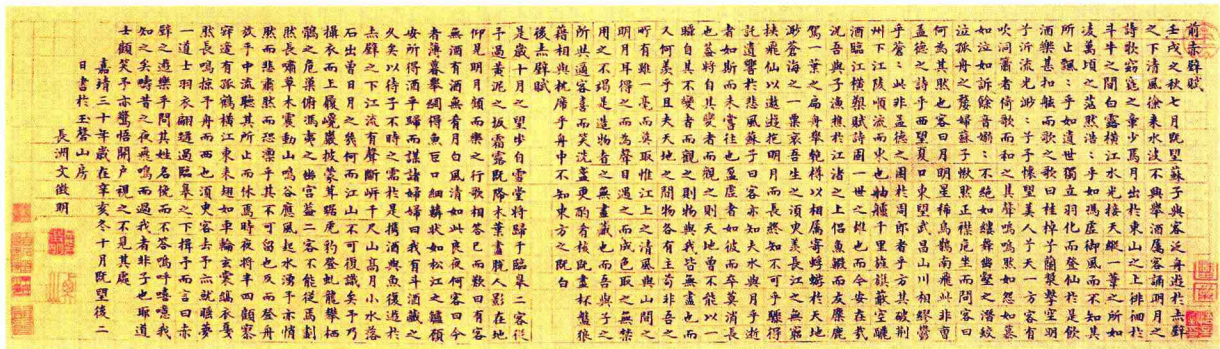 前赤壁賦
壬戌之秋七月既望蘇子與客泛舟遊於赤壁
之下清風徐来水波不興舉酒屬客誦明月之
詩歌窈窕之章少焉月出於東山之上徘徊於
斗牛之間白露横江水光接天縱一葦之所如
凌萬頃之茫然浩浩乎如馮虛御風而不知其
所止飄飄乎如遺世獨立羽化而登仙於是飲
酒樂甚扣舷而歌之歌曰桂棹兮蘭槳擊空明
兮泝流光渺渺兮予懷望美人兮天一方客有
吹洞簫者倚歌而和之其聲嗚嗚然如怨如慕
如泣如訴餘音嫋嫋不絶如縷舞幽壑之潛蛟
泣孤舟之嫠婦蘇子愀然正襟危坐而問客曰
何為其然也客曰月明星稀烏鵲南飛此非曹
孟德之詩乎西望夏口東望武昌山川相繆鬱
乎蒼蒼此非孟德之困於周郎者乎方其破荆
州下江陵順流而東也舳艫千里旌旗蔽空釃
酒臨江横槊賦詩固一世之雄也而今安在哉
況吾與子漁樵於江渚之上侣魚鰕而友麋鹿
駕一葉之扁舟舉匏樽以相屬寄蜉蝣於天地
渺滄海之一粟哀吾生之須臾羡長江之無窮
挾飛仙以遨遊抱明月而長終知不可乎驟得
託遺響於悲風蘇子曰客亦知夫水與月乎逝
者如斯而未嘗往也盈虛者如彼而卒莫消長
也葢將自其變者而觀之則天地曾不能以一
瞬自其不變者而觀之則物與我皆無盡也而
又何羡乎且夫天地之間物各有主苟非吾之
所有雖一毫而莫取惟江上之清風與山間之
明月耳得之而為聲目遇之而成色取之無禁
用之不竭是造物者之無盡藏也而吾與子之
所共適客喜而笑洗盞更酌肴核既盡杯盤狼
藉相與枕席乎舟中不知東方之既白
後赤壁賦
是歲十月之望步自雪堂將歸于臨皋二客從
予過黄泥之坂霜露既降木葉盡脱人影在地
仰見明月顧而樂之行歌相答已而歎曰有客
無酒有酒無肴月白風清如此良夜何客曰今
者薄暮舉網得魚巨口細鱗狀如松江之鱸顧
安所得酒乎歸而謀諸婦婦曰我有斗酒藏之
久矣以待子不時之需於是攜酒與魚復遊於
赤壁之下江流有聲斷岸千尺山高月小水落
石出曾日月之幾何而江山不可復識矣予乃
攝衣而上履巉巖披蒙茸踞虎豹登虬龍攀栖
鶻之危巢俯馮夷之幽宫葢二客不能從焉劃
然長嘯草木震動山鳴谷應風起水湧予亦悄
然而悲肅然而恐凛乎其不可留也反而登舟
放乎中流聽其所止而休焉時夜將半四顧寂
寥適有孤鶴横江東来翅如車輪玄裳縞衣戛
然長鳴掠予舟而西也須臾客去予亦就睡夢
一道士羽衣翩躚過臨皋之下揖予而言曰赤
壁之遊樂乎問其姓名俛而不答嗚呼噫嘻我
知之矣疇昔之夜飛鳴而過我者非子也耶道
士顧笑予亦驚悟開户視之不見其處
嘉靖三十年歲在辛亥冬十月既望後二
日書於玉磬山房
長洲文徵明